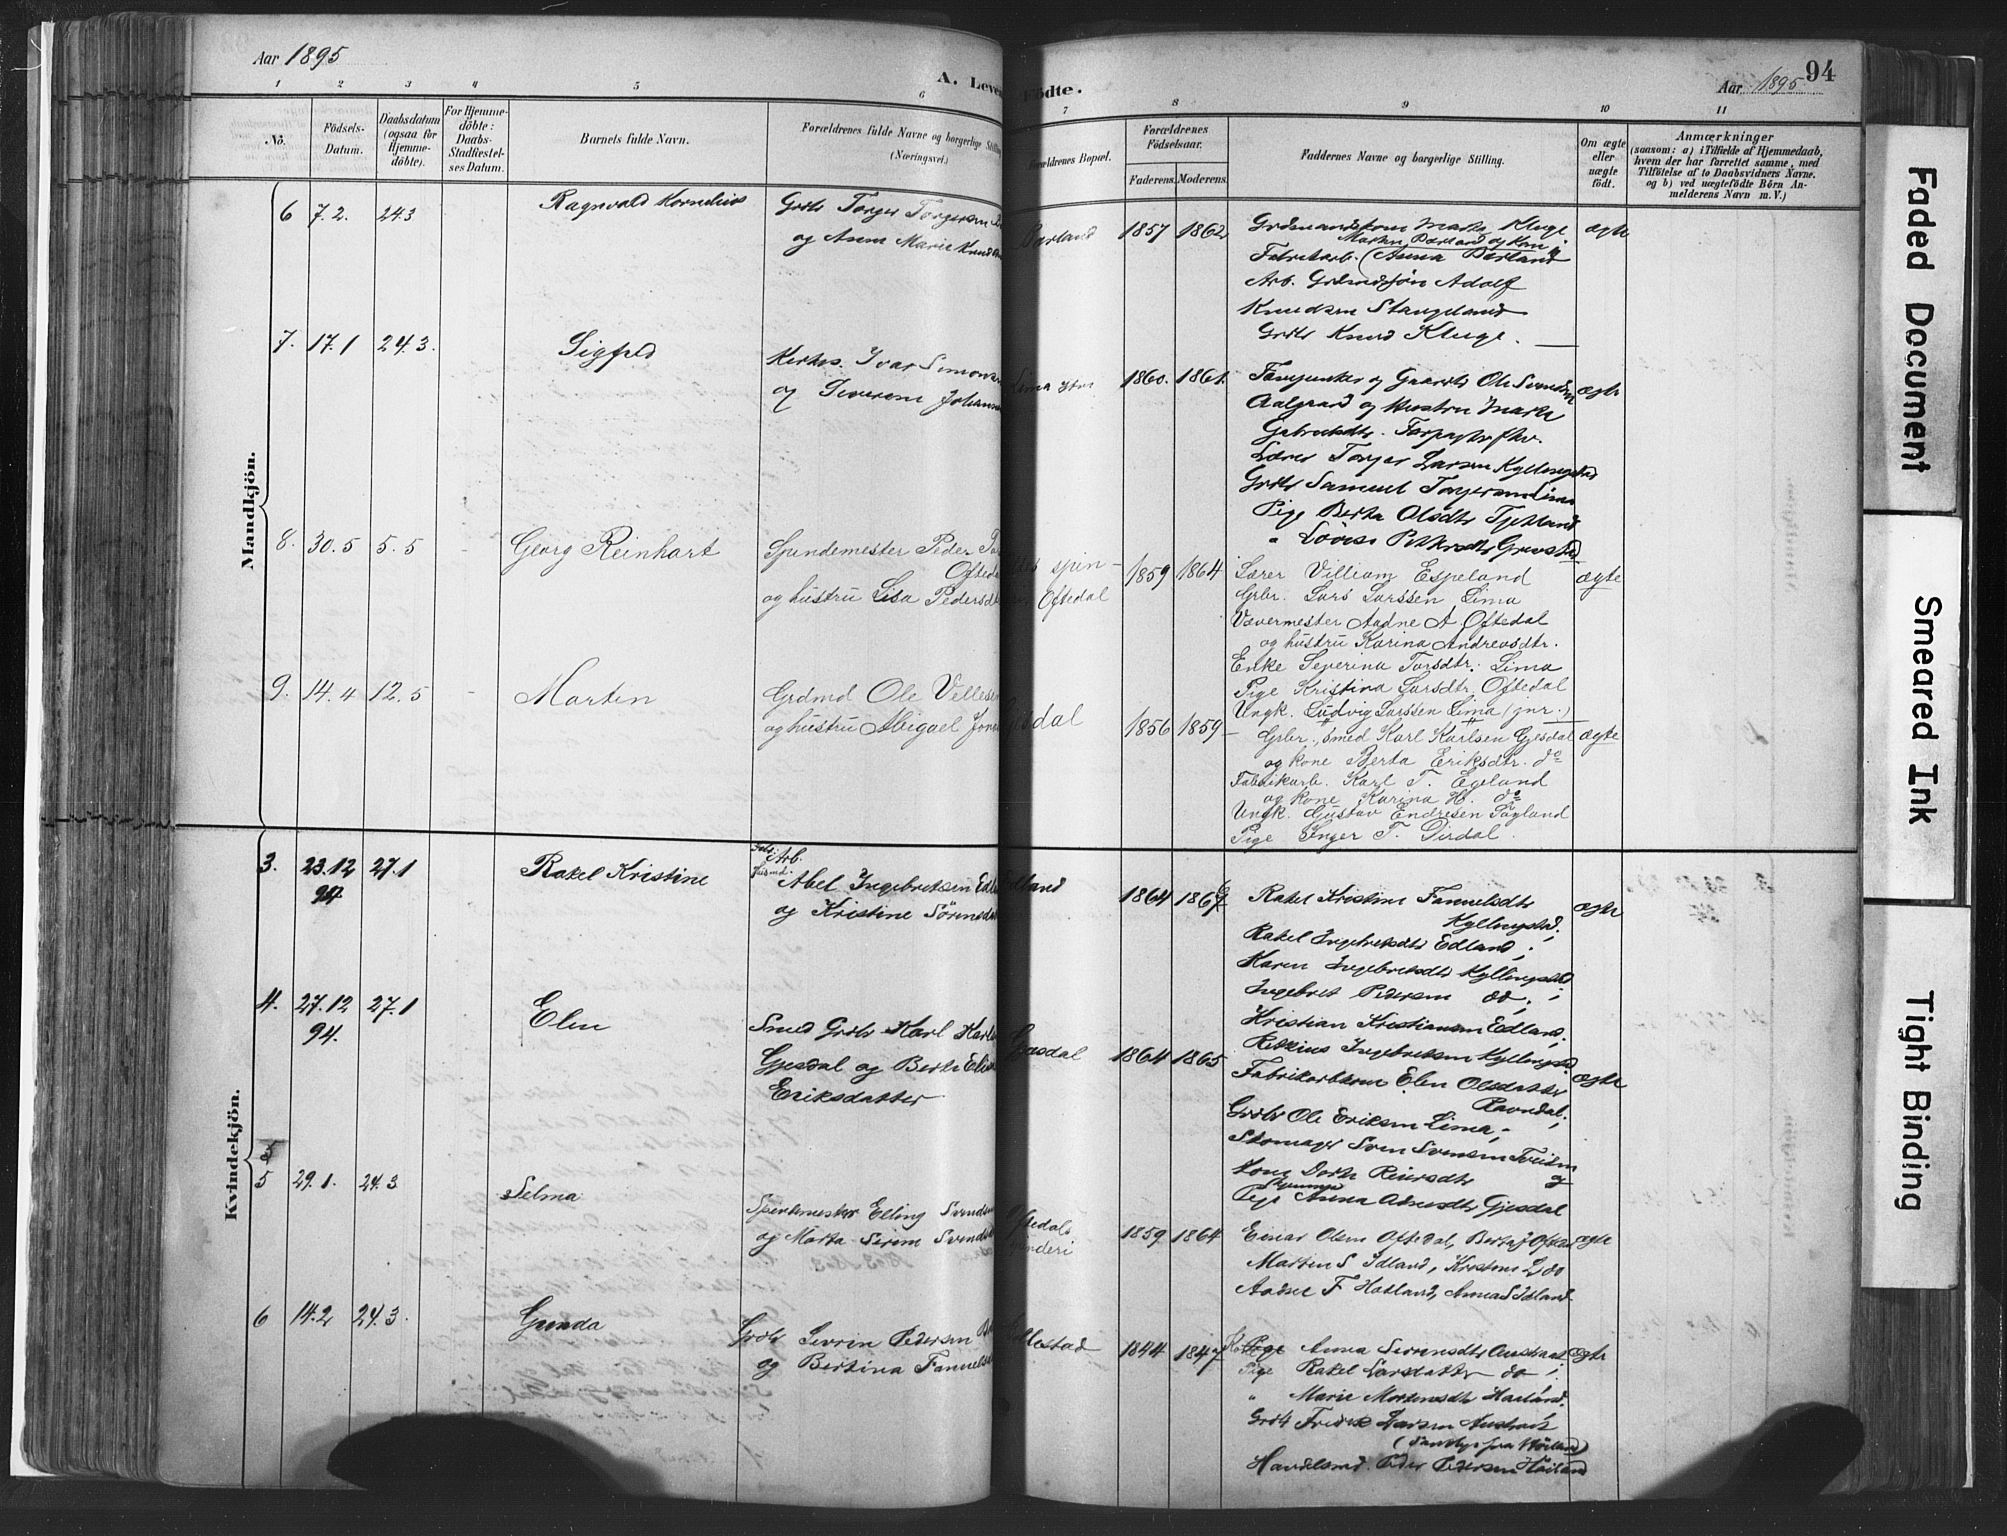 Aar 1895
A. Levende Födte.
Aar 1895
94
1 2 3 4 5 6 7 8 9 10 11
No.
Födsels-
Datum.
Daabsdatum
(ogsaa for
Hjemme-
döbte).
For Hjemme-
döbte:
Daabs-
Stadfæstel-
ses Datum.
Barnets fulde Navn.
Forældrenes fulde Navne og borgerlige Stilling
(Næringsvei.)
Forældrenes Bopæl.
Forældrenes
Födselsaar.
Faderens. Moderens.
Faddernes Navne og borgerlige Stilling.
Om ægte
eller
uægte
födt.
Anmærkninger
(saasom: a) i Tilfælde af Hjemmedaab,
hvem der har forrettet samme, med
Tilföielse af to Daabsvidners Navne.
og b) ved uægtefödte Börn An-
melderens Navn m. V.)
Mandkjön.
6 7.2. 24.3 Ragnvald Kornelius
Grdbr Torger Torgersen
og Anna Marie Knud
Bærland 1857 1862 ægte
Marta Kluge
Morten Bærland og Kone
Fabrikarb. (Anna Bærland
Arb. Adolf
Knudsen Stangeland
Grdbr Knud Kluge.
7. 17.1 24.3. Sigfred
Kirkes. Ivar Simons
og Severine Johann
Lima 1860. 1861. ægte
og Gaardbr Ole Svendsen
Aalgaard og Hustru Marta
Gabrielsdtr.
Lærer Torger Larsen Kyllingstad
Grdbr Samuel Torgersen Lima
Pige Berta Olsdtr Tjetland
" Lovise
8. 30.5 5.5 - Georg Reinhart
Spindemester Peder
Ofteda
og hustru Lisa Pedersd
spin-
Oftedal
1859 1864 ægte
Lærer Villiam Espeland
Grbr. Lars Larssen Lima
Vævermester Aadne A. Oftedal
og hustru Karina Andreasdtr.
Enke Severina Torsdtr. Lima
Pige Kristina Larsdtr. Oftedal
Ungk. Ludvig Larssen Lima (jnr.)
9. 14.4 12.5 - Morten
Grdmd Ole Velles
og hustru Abigael Jons
Gjesdal 1856 1859 ægte
Grbr., smed Karl Karlsen Gjesdal
og kone Berta Eriksdtr. do
Fabrikarb. Karl T. Egeland
og kone Karina H. do
Ungk. Gustav Endresen
Pige Inger T. Dirdal.
Kvindekjön.
3. 23.12 27.1 Rakel Kristine
94
Arb.
Abel Ingebretsen Edl
og Kristine Sörensda
Edland 1864 1867 ægte
Rakel Kristine Fannelsdtr
Kyllingstad;
Rakel Ingebretsdtr Edland;
Karen Ingebretsdtr Kyllingstad
Ingebret Pedersen do;
Kristian Kristiansen Edland;
Ingebretsen Kyllingsta
4. 27.12 27.1 Elen
94.
Smed Grdbr Karl Karls
Gjesdal og Berta Elis
Eriksdatter
Gjesdal 1864 1865 ægte
Fabrikarbkone Elen Olsdatter
Ravndal;
Grdbr Ole Eriksen Lima;
Skomager Sven Svensen
Kone Dorte Reiersdtr og
Pige Anna Gjesdal
5 29.1. 24.3 Selma
Spindemester Elling Svends
og Marta Serine Svends
Oftedals
spinderi
1859 1864 ægte
Einar Olsen Oftedal, Berta J Ofted
Morten S Idland, Kristense L do
Aadne F Hatland, Anna S Idland
6 14.2 24.3. Gunda
Grdbr Sevrin Pedersen
og Bertina Fannels
1844 1847 ægte
Pige Anna Sevrensdtr Austraat
Pige Rakel Larsdatter do;
" Marie Mortensdtr Haaland.
Grdbr Fredrik Larsen Austraat
Handelsmd. Peder Pedersen Höiland
Faded Document
Smeared Ink
Tight Binding